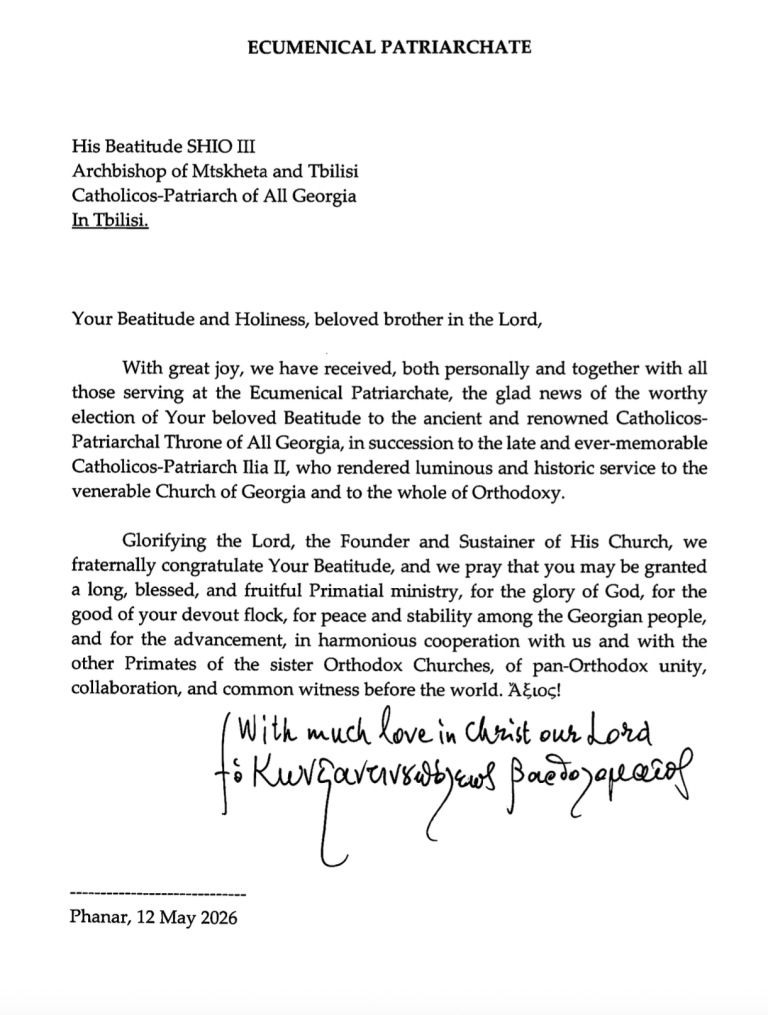 ECUMENICAL PATRIARCHATE
His Beatitude SHIO III
Archbishop of Mtskheta and Tbilisi
Catholicos-Patriarch of All Georgia
In Tbilisi.
Your Beatitude and Holiness, beloved brother in the Lord,
With great joy, we have received, both personally and together with all
those serving at the Ecumenical Patriarchate, the glad news of the worthy
election of Your beloved Beatitude to the ancient and renowned Catholicos-
Patriarchal Throne of All Georgia, in succession to the late and ever-memorable
Catholicos-Patriarch Ilia II, who rendered luminous and historic service to the
venerable Church of Georgia and to the whole of Orthodoxy.
Glorifying the Lord, the Founder and Sustainer of His Church, we
fraternally congratulate Your Beatitude, and we pray that you may be granted
a long, blessed, and fruitful Primatial ministry, for the glory of God, for the
good of your devout flock, for peace and stability among the Georgian people,
and for the advancement, in harmonious cooperation with us and with the
other Primates of the sister Orthodox Churches, of pan-Orthodox unity,
collaboration, and common witness before the world. Ἄξιος!
With much love in Christ our Lord
† ὁ Κωνσταντινουπόλεως Βαρθολομαῖος
----------------------------
Phanar, 12 May 2026